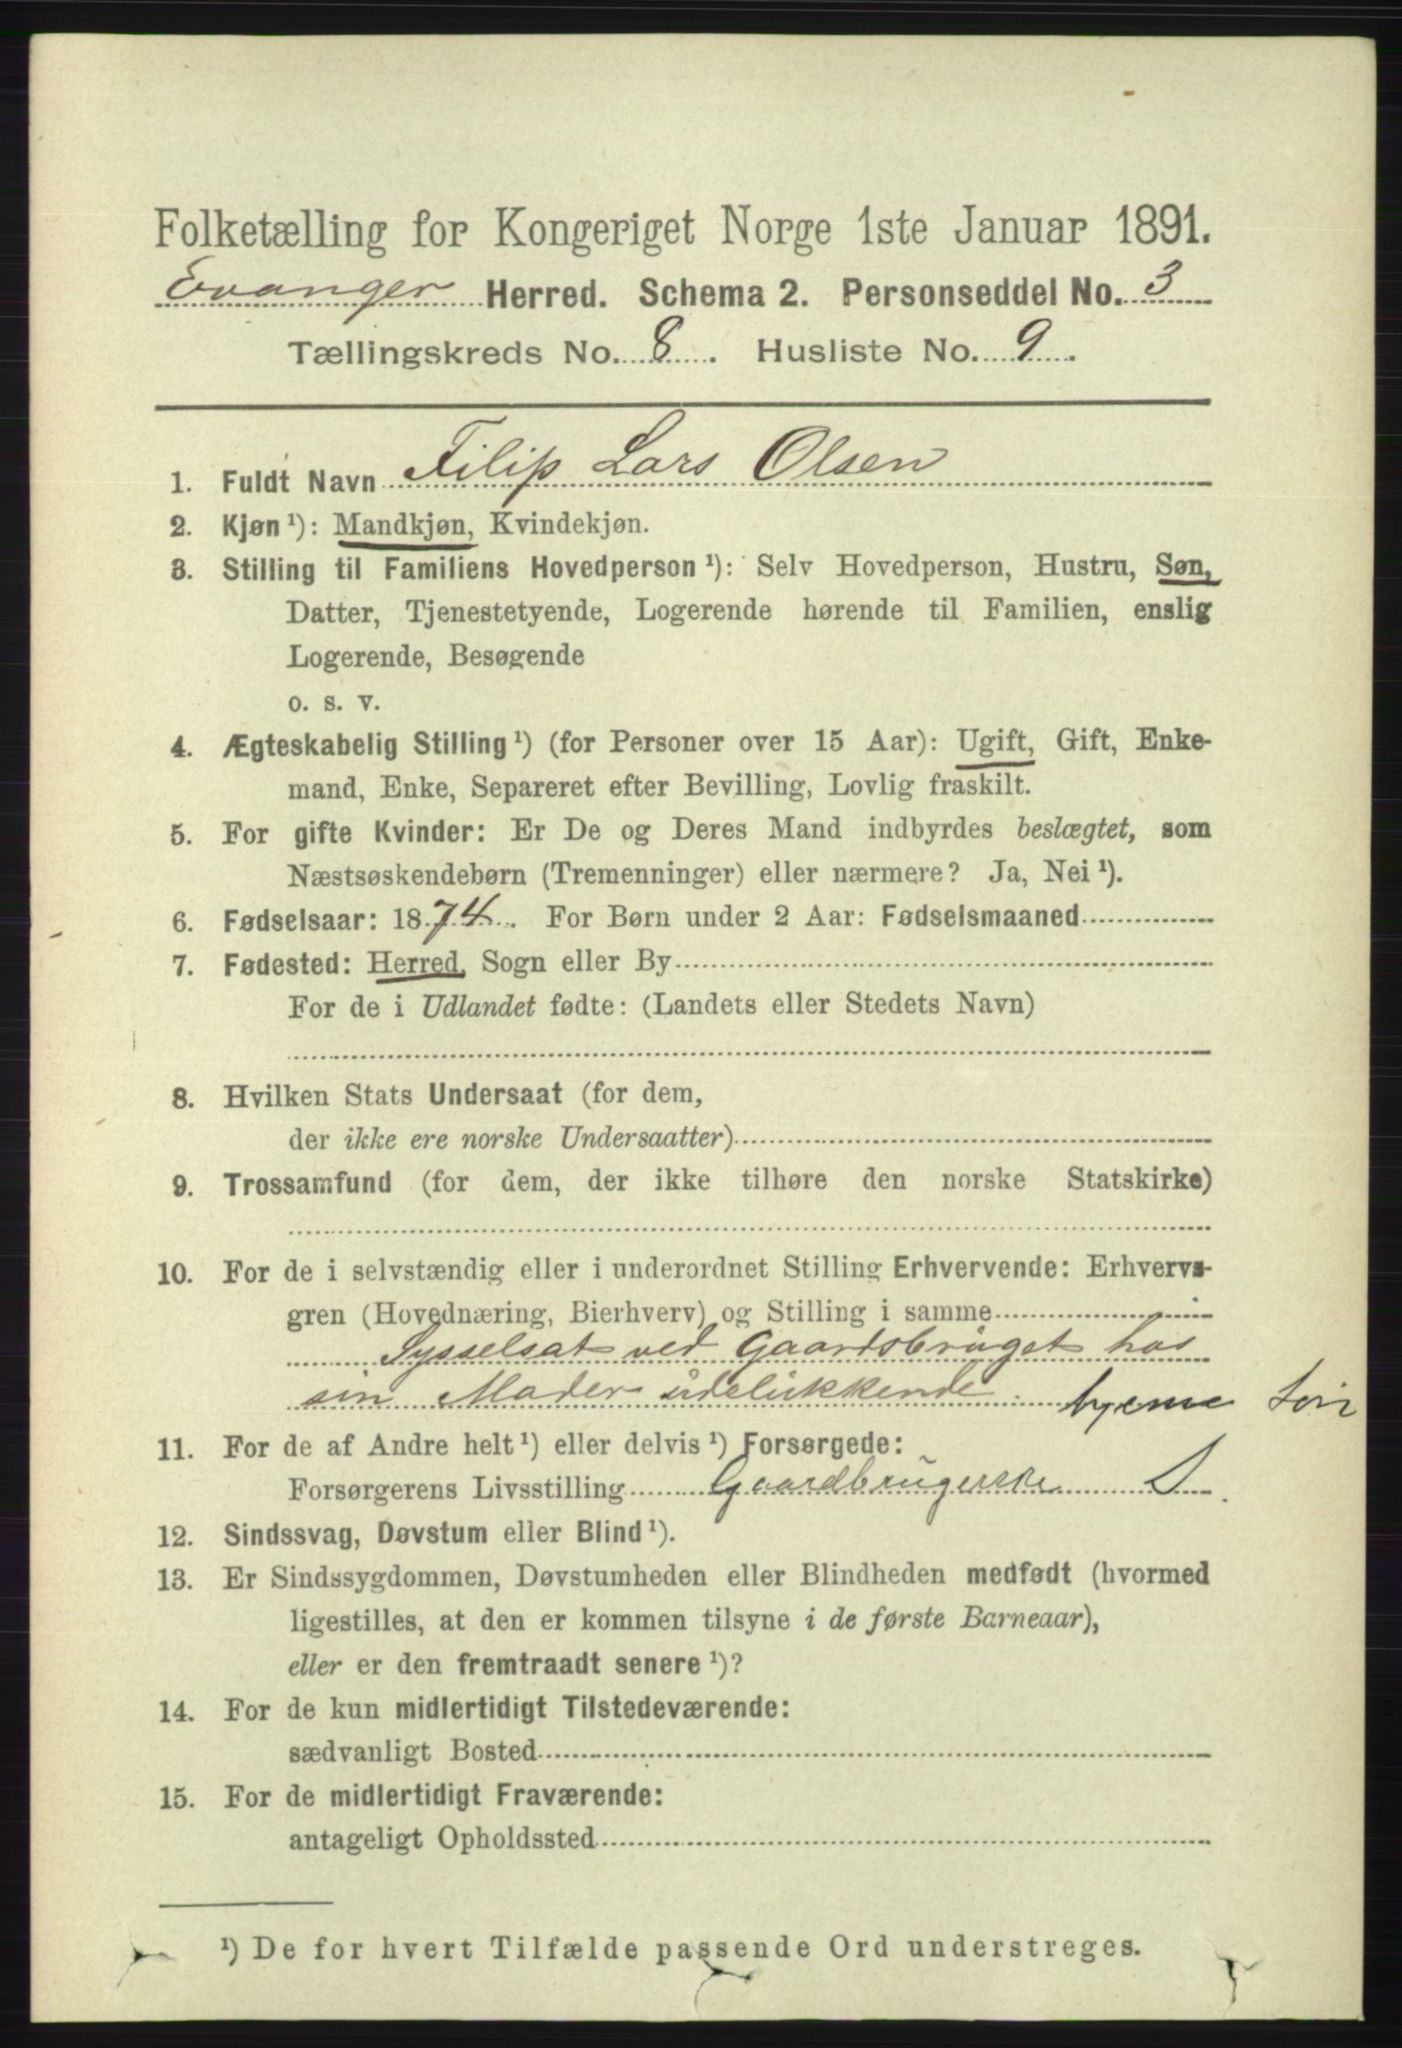 Folketælling for Kongeriget Norge 1ste Januar 1891.
Evanger Herred. Schema 2. Personseddel No. 3
Tællingskreds No. 8. Husliste No. 9.
1. Fuldt Navn Filip Lars Olsen
2. Kjøn ¹): Mandkjøn, Kvindekjøn.
3. Stilling til Familiens Hovedperson ¹): Selv Hovedperson, Hustru, Søn,
Datter, Tjenestetyende, Logerende hørende til Familien, enslig
Logerende, Besøgende
o. s. v.
4. Ægteskabelig Stilling ¹) (for Personer over 15 Aar): Ugift, Gift, Enke-
mand, Enke, Separeret efter Bevilling, Lovlig fraskilt.
5. For gifte Kvinder: Er De og Deres Mand indbyrdes beslægtet, som
Næstsøskendebørn (Tremenninger) eller nærmere? Ja, Nei ¹).
6. Fødselsaar: 1874. For Børn under 2 Aar: Fødselsmaaned
7. Fødested: Herred, Sogn eller By
For de i Udlandet fødte: (Landets eller Stedets Navn)
8. Hvilken Stats Undersaat (for dem,
der ikke ere norske Undersaatter)
9. Trossamfund (for dem, der ikke tilhøre den norske Statskirke)
10. For de i selvstændig eller i underordnet Stilling Erhvervende: Erhvervs-
gren (Hovednæring, Bierhverv) og Stilling i samme
Sysselsat ved Gaardsbruget hos
sin Moder udelukkende. hjemme Søn
11. For de af Andre helt ¹) eller delvis ¹) Forsørgede:
Forsørgerens Livsstilling Gaardbrugerske S
12. Sindssvag, Døvstum eller Blind ¹).
13. Er Sindssygdommen, Døvstumheden eller Blindheden medfødt (hvormed
ligestilles, at den er kommen tilsyne i de første Barneaar),
eller er den fremtraadt senere ¹)?
14. For de kun midlertidigt Tilstedeværende:
sædvanligt Bosted
15. For de midlertidigt Fraværende:
antageligt Opholdssted
¹) De for hvert Tilfælde passende Ord understreges.